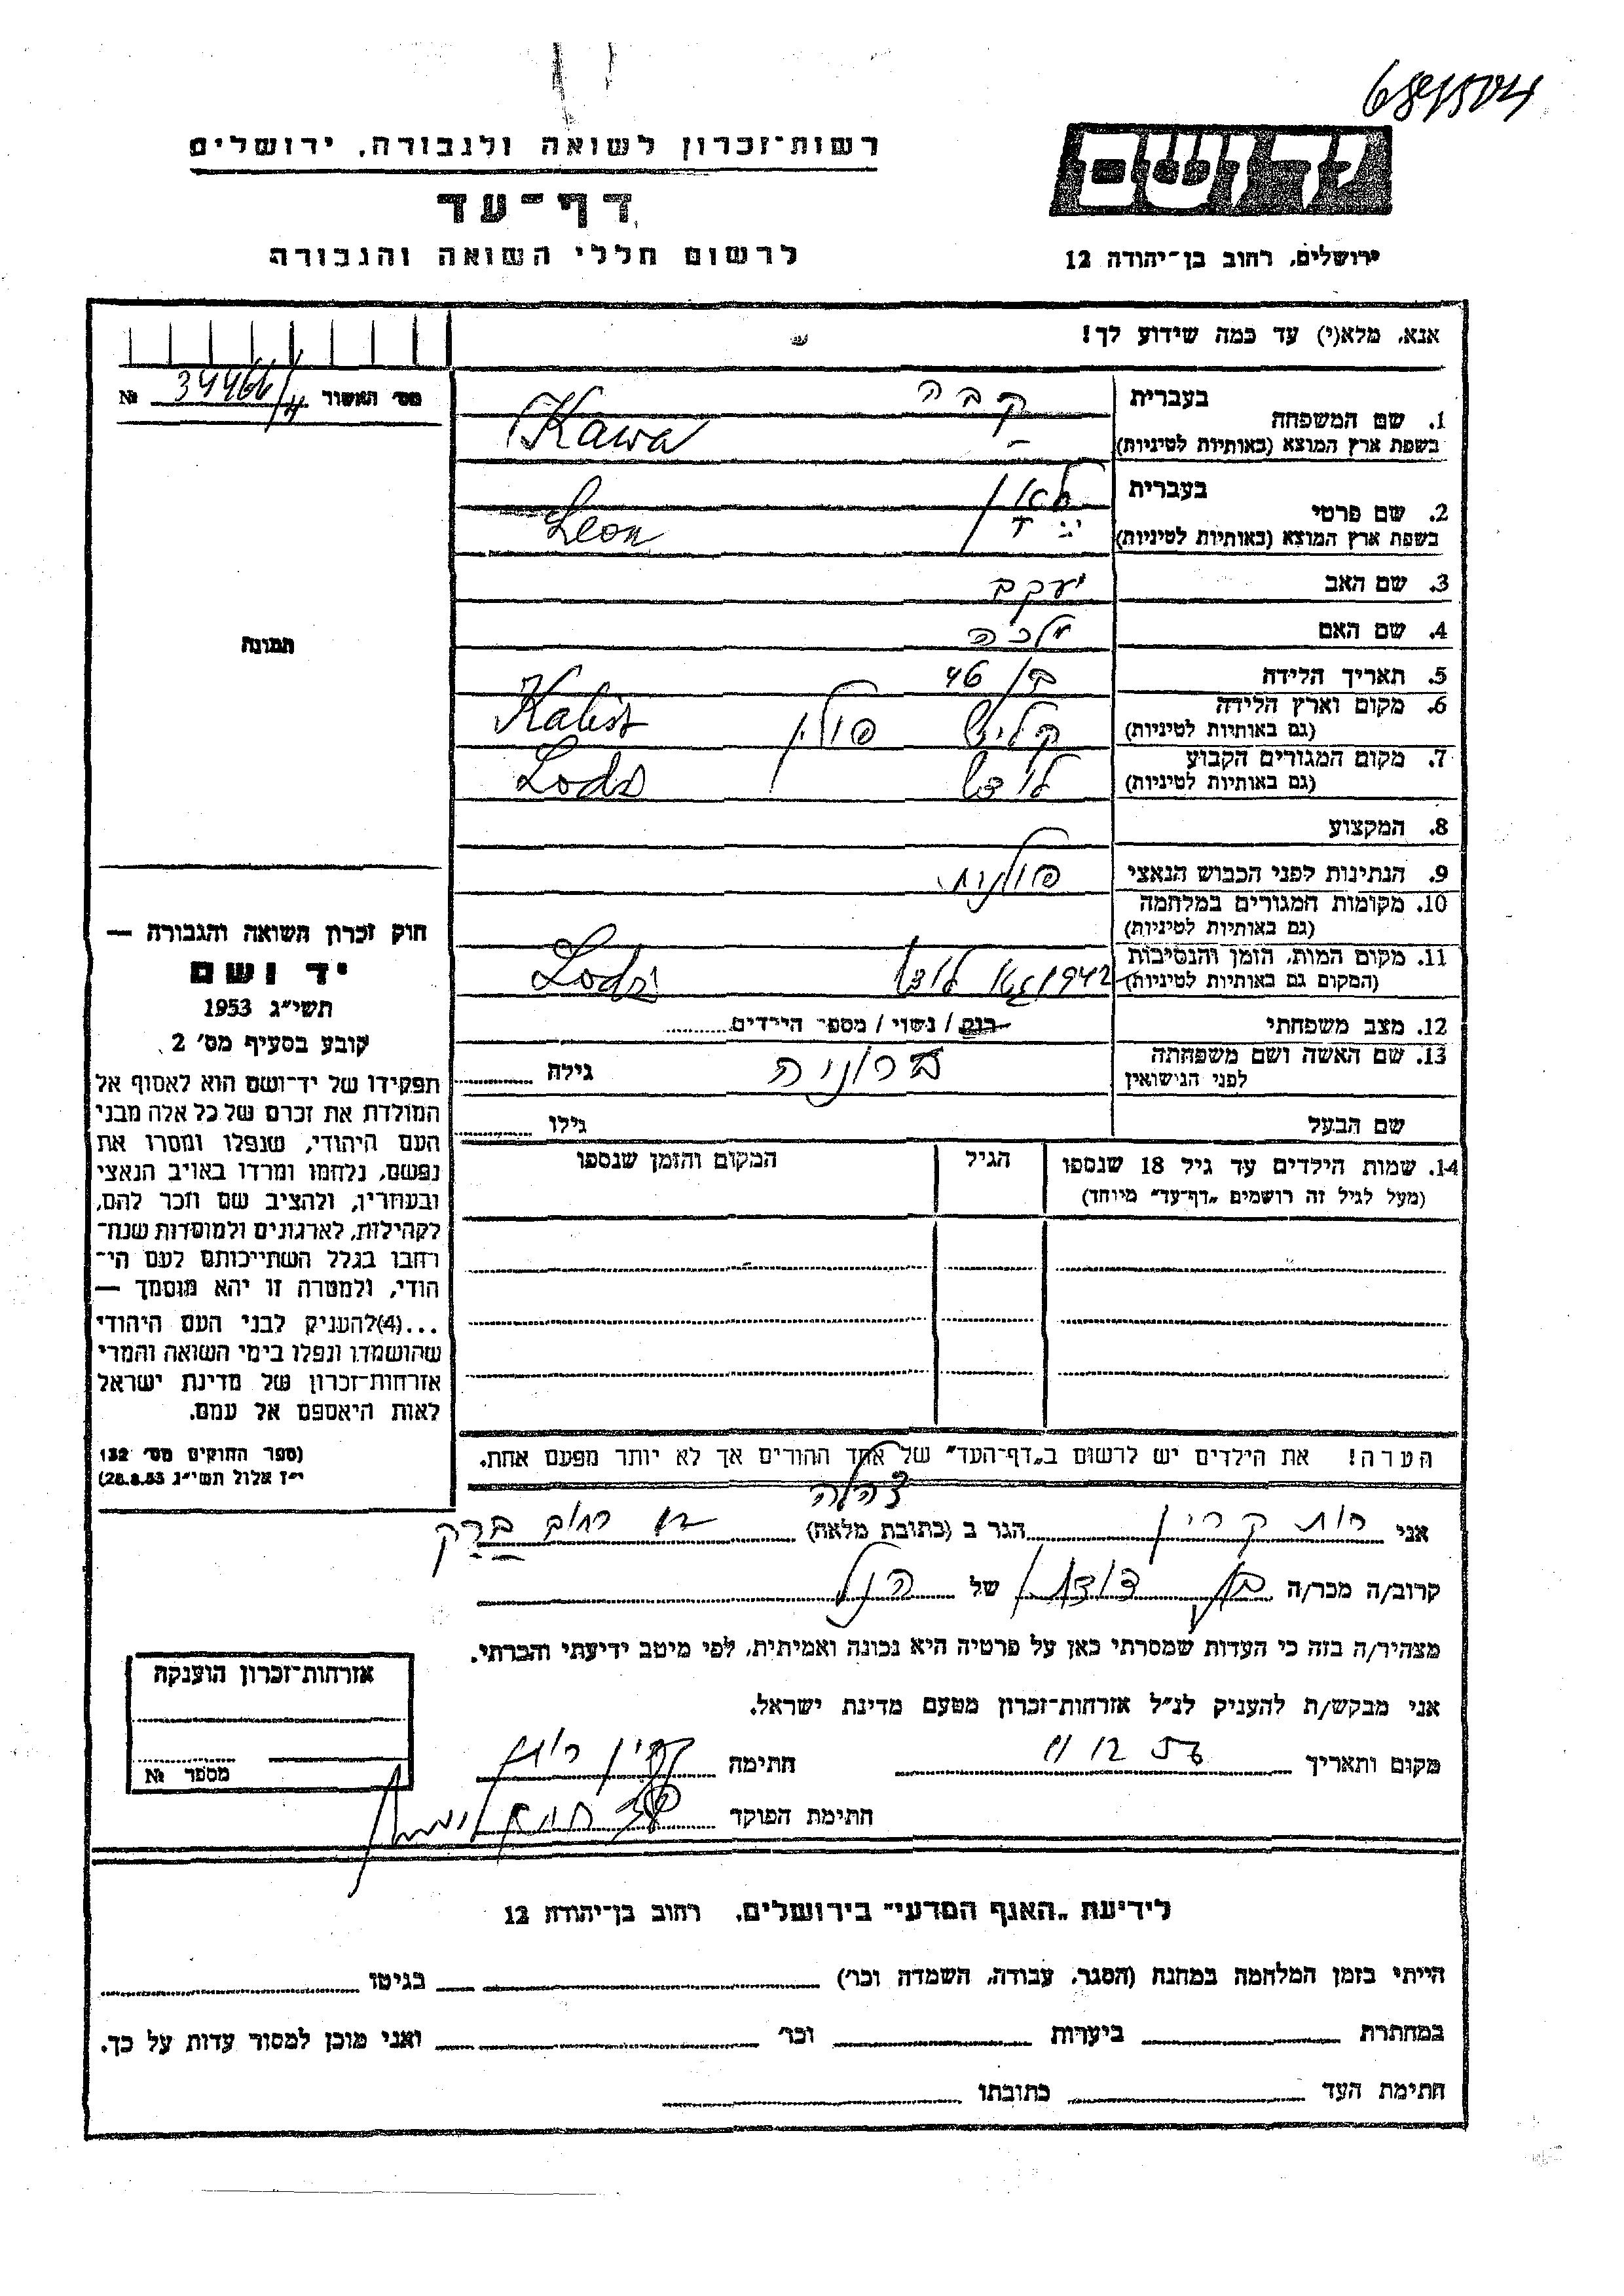 6841504
רשות־זכרון לשואה ולגבורה, ירושלים
דף־עד
לרשום חללי השואה והגבורה
יד ושם
ירושלים, רחוב בן־יהודה 12
אנא, מלא(י) עד כמה שידוע לך!
מס׳ האשור 34466/4 №
1. שם המשפחה בעברית קבה
בשפת ארץ המוצא (באותיות לטיניות) Kawa
2. שם פרטי בעברית לאון
בשפת ארץ המוצא (באותיות לטיניות) Leon
3. שם האב יעקב
4. שם האם מלכה
5. תאריך הלידה בן 46
6. מקום וארץ הלידה (גם באותיות לטיניות) קליש פולין Kalisz
7. מקום המגורים הקבוע (גם באותיות לטיניות) לודז׳ Lodz
8. המקצוע
9. הנתינות לפני הכבוש הנאצי פולנית
10. מקומות המגורים במלחמה (גם באותיות לטיניות)
11. מקום המות, הזמן והנסיבות (המקום גם באותיות לטיניות) 1942 גטו לודז׳ Lodz
12. מצב משפחתי רווק / נשוי / מספר הילדים
13. שם האשה ושם משפחתה לפני הנישואין ברוניה גילה
שם הבעל גילו
14. שמות הילדים עד גיל 18 שנספו הגיל המקום והזמן שנספו
(מעל לגיל זה רושמים „דף־עד״ מיוחד)
תמונה
חוק זכרון השואה והגבורה —
יד ושם
תשי״ג 1953
קובע בסעיף מס׳ 2
תפקידו של יד־ושם הוא לאסוף אל
המולדת את זכרם של כל אלה מבני
העם היהודי, שנפלו ומסרו את
נפשם, נלחמו ומרדו באויב הנאצי
ובעוזריו, ולהציב שם וזכר להם,
לקהילות, לארגונים ולמוסדות שנח־
רבו בגלל השתייכותם לעם הי־
הודי, ולמטרה זו יהא מוסמך —
...(4)להעניק לבני העם היהודי
שהושמדו ונפלו בימי השואה והמרי
אזרחות־זכרון של מדינת ישראל
לאות היאספם אל עמם.
(ספר החוקים מס׳ 132
י״ז אלול תשי״ג 28.8.53)
הערה! את הילדים יש לרשום ב„דף־העד״ של אחד ההורים אך לא יותר מפעם אחת.
צהלה
אני רות קרין הגר ב (כתובת מלאה) רחוב ברק
קרוב/ה מכר/ה בן דודו של הנ״ל
מצהיר/ה בזה כי העדות שמסרתי כאן על פרטיה היא נכונה ואמיתית, לפי מיטב ידיעתי והכרתי.
אני מבקש/ת להעניק לנ״ל אזרחות־זכרון מטעם מדינת ישראל.
מקום ותאריך חתימה קרין רות
חתימת הפוקד
אזרחות־זכרון הוענקה
מספר №
לידיעת „האגף המדעי״ בירושלים, רחוב בן־יהודה 12
הייתי בזמן המלחמה במחנה (הסגר, עבודה, השמדה וכו׳) בגיטו
במחתרת ביערות וכו׳ ואני מוכן למסור עדות על כך.
חתימת העד כתובתו